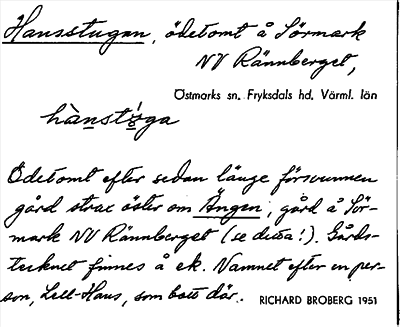 Hansstugan, ödetomt å Sörmark
NV Rännberget,
Östmarks sn. Fryksdals hd. Värml. län
Ödetomt efter sedan länge försvunnen
gård strax öster om Ängen, gård å Sör-
mark NV Rännberget (se dessa!). Gårds-
tecknet finnes å ek. Namnet efter en per-
son, Lill-Hans, som bott där.
RICHARD BROBERG 1951